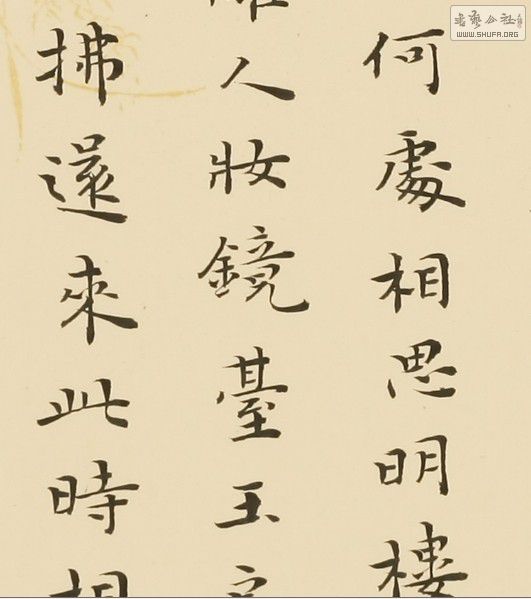 何處相思明樓
人妝鏡臺玉
拂還來此時相
書藝公社
WWW.SHUFA.ORG